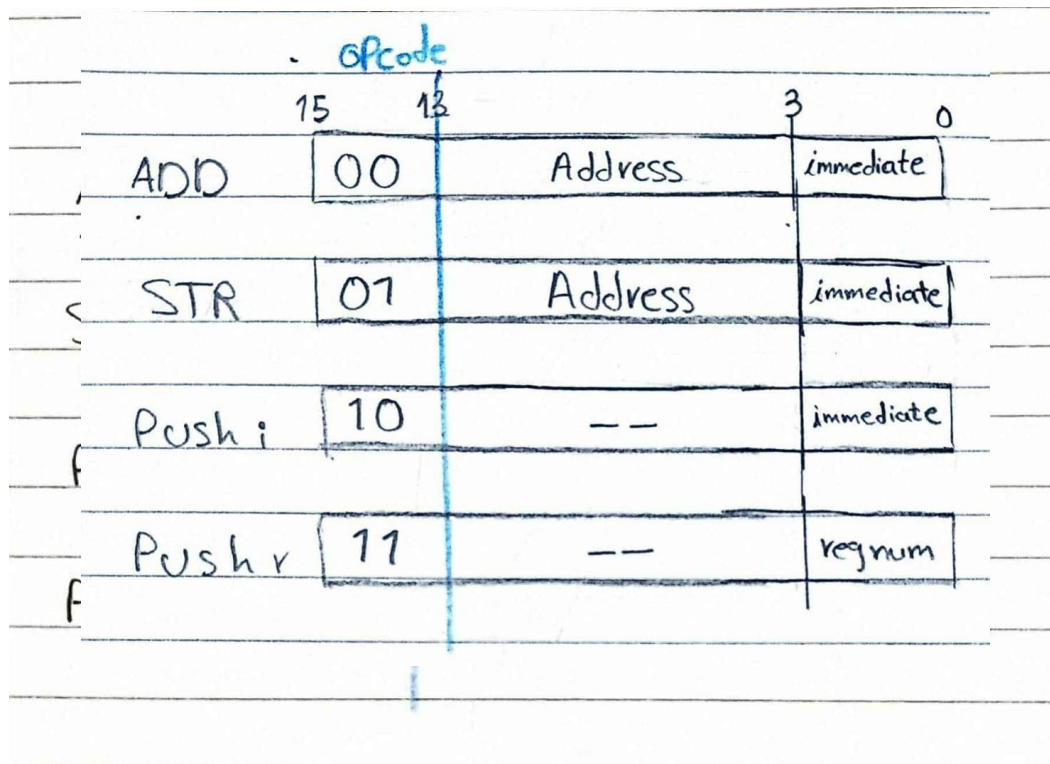 opcode
15 13 3 0
ADD 00 Address immediate
STR 01 Address immediate
Push i 10 -- immediate
Push r 11 -- regnum